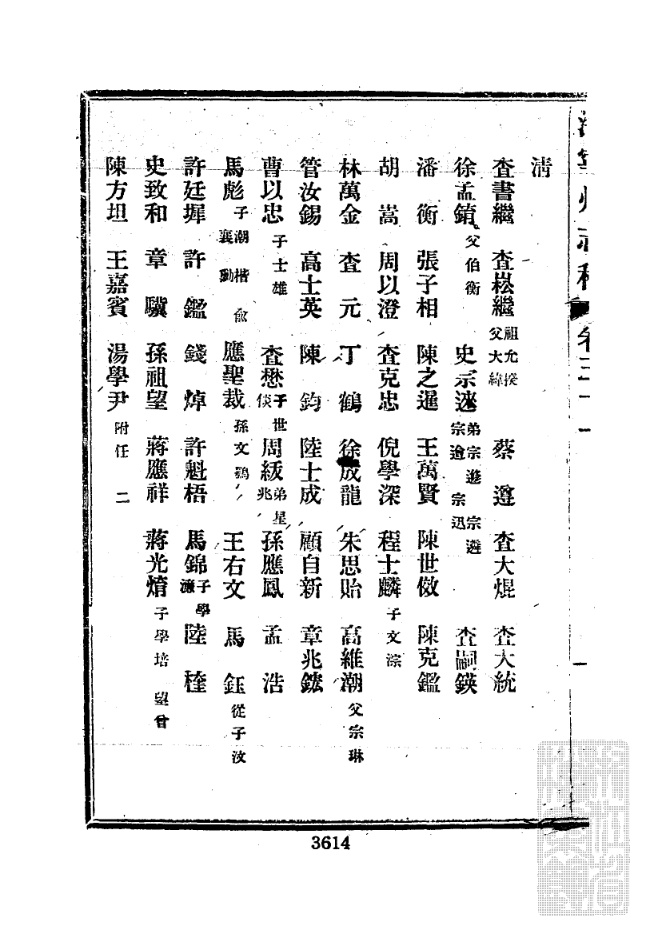 清
查書繼 查崧繼 祖允揆 父大緯 蔡遵 查大焜 查大統
徐孟錥 父伯衡 史宗逵 弟宗遴 宗遊 宗逾 宗迅 查嗣鍈
潘衡 張子相 陳之暹 王萬賢 陳世儆 陳克鑑
胡嵩 周以澄 查克忠 倪學深 程士麟 子文淙
林萬金 查元 丁鶴 徐成龍 朱思貽 高維潮 父宗琳
管汝錫 高士英 陳鈞 陸士成 顧自新 章兆鋐
曹以忠 子士雄 查懋 子世倓 周級 弟星兆 孫應鳳 孟浩
馬彪 子潮 楷 俞 襄勳 應聖裁 孫文鶚 王右文 馬鈺 從子汶
許廷墀 許鑑 錢焯 許魁梧 馬錦 子學濂 陸𣓨
史致和 章驥 孫祖望 蔣應祥 蔣光焴 子學培 望曾
陳方坦 王嘉賓 湯學尹 附任 二
3614